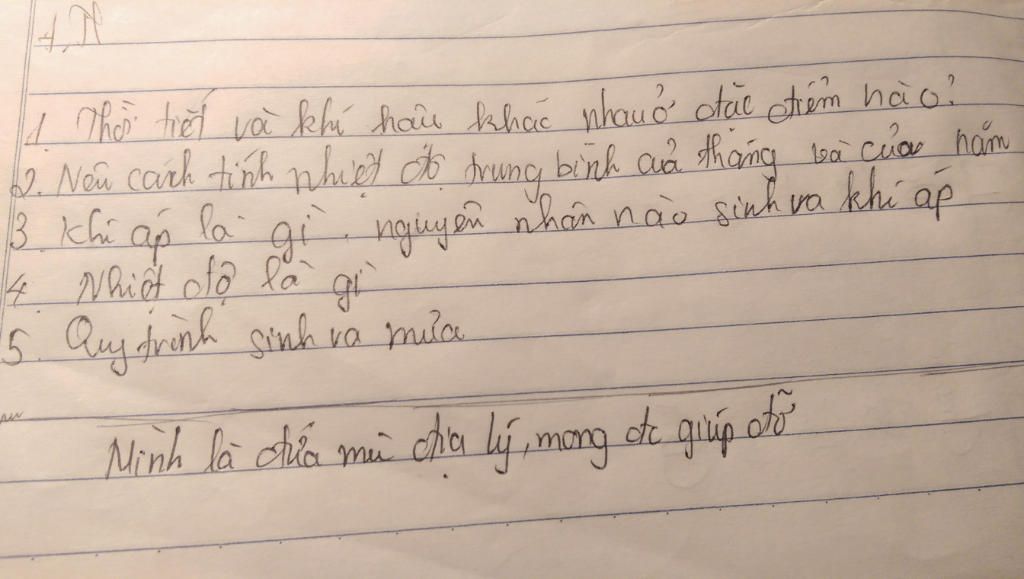 1. Thời tiết và khí hậu khác nhau ở đặc điểm nào?
2. Nêu cách tính nhiệt độ trung bình của tháng và của năm
3. Khí áp là gì, nguyên nhân nào sinh ra khí áp
4. Nhiệt độ là gì
5. Quy trình sinh ra mưa
Mình là đứa mù địa lý, mong đc giúp đỡ